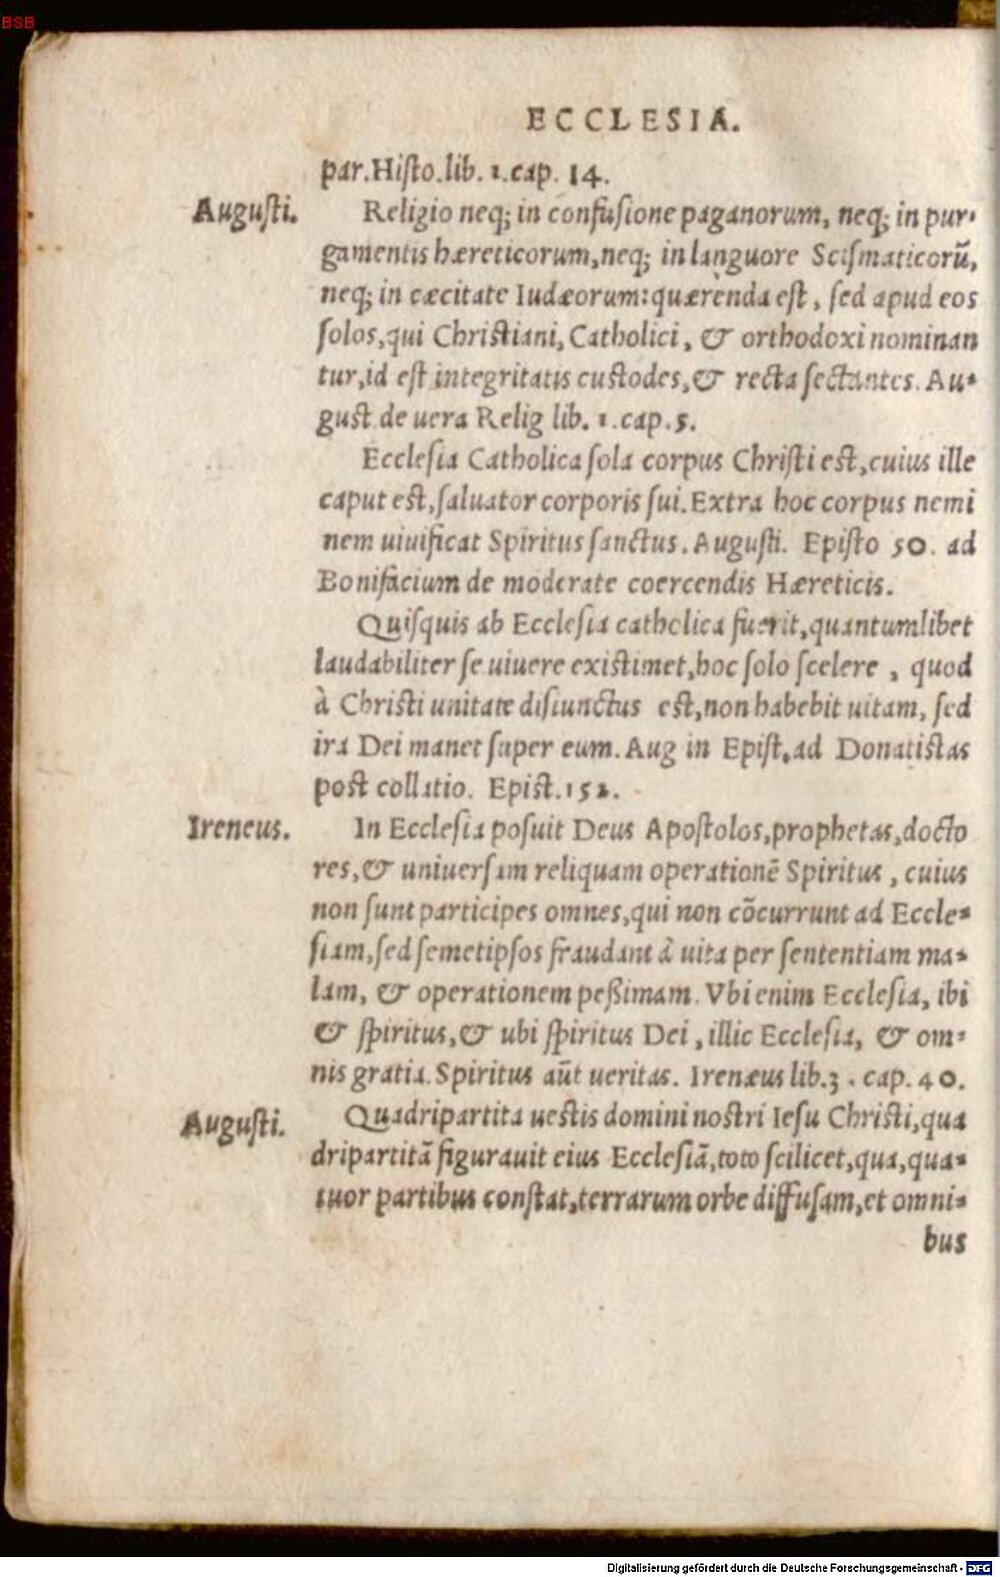 BSB
ECCLESIA.
par.Histo.lib. 1.cap. 14.
Augusti.
Religio neq; in confusione paganorum, neq; in pur-
gamentis hæreticorum,neq; in languore Scismaticorũ,
neq; in cæcitate Iudæorum:quærenda est, sed apud eos
solos,qui Christiani, Catholici, & orthodoxi nominan
tur,id est integritatis custodes,& recta sectantes. Au-
gust de uera Relig lib. 1.cap.5.
Ecclesia Catholica sola corpus Christi est,cuius ille
caput est,saluator corporis sui.Extra hoc corpus nemi
nem uiuificat Spiritus sanctus. Augusti. Episto 50. ad
Bonifacium de moderate coercendis Hæreticis.
Quisquis ab Ecclesia catholica fuerit,quantumlibet
laudabiliter se uiuere existimet,hoc solo scelere, quod
à Christi unitate disiunctus est,non habebit uitam, sed
ira Dei manet super eum.Aug in Epist.ad Donatistas
post collatio. Epist.152.
Ireneus.
In Ecclesia posuit Deus Apostolos,prophetas,docto
res,& uniuersam reliquam operationẽ Spiritus, cuius
non sunt participes omnes,qui non cõcurrunt ad Eccle-
siam,sed semetipsos fraudant à uita per sententiam ma-
lam, & operationem peßimam. Vbi enim Ecclesia, ibi
& spiritus,& ubi spiritus Dei, illic Ecclesia, & om-
nis gratia.Spiritus aũt ueritas. Irenæus lib.3. cap.40.
Augusti.
Quadripartita uestis domini nostri Iesu Christi,qua
dripartitã figurauit eius Ecclesiã,toto scilicet,qua,qua-
tuor partibus constat,terrarum orbe diffusam,et omni-
bus
Digitalisierung gefördert durch die Deutsche Forschungsgemeinschaft - DFG